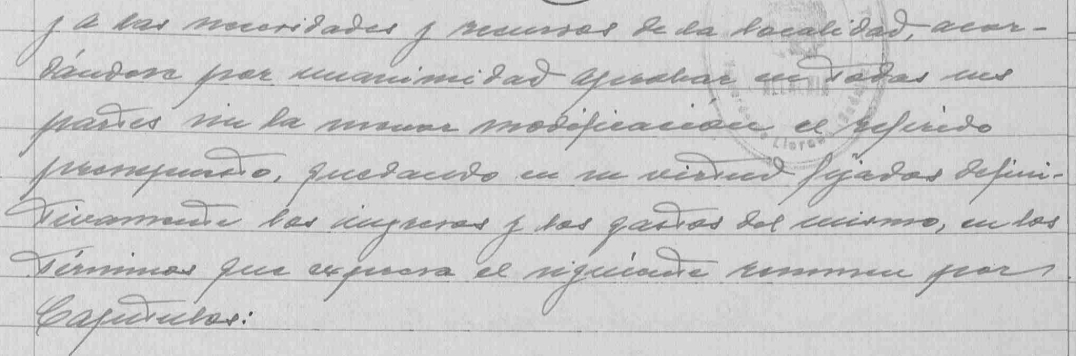 y a las necesidades y recursos de la localidad, acor-
dándose por unanimidad aprobar en todas sus
partes sin la menor modificación el referido
presupuesto, quedando en su virtud fijados defini-
tivamente los ingresos y los gastos del mismo, en los
términos que expresa el siguiente resumen por
Capítulos: